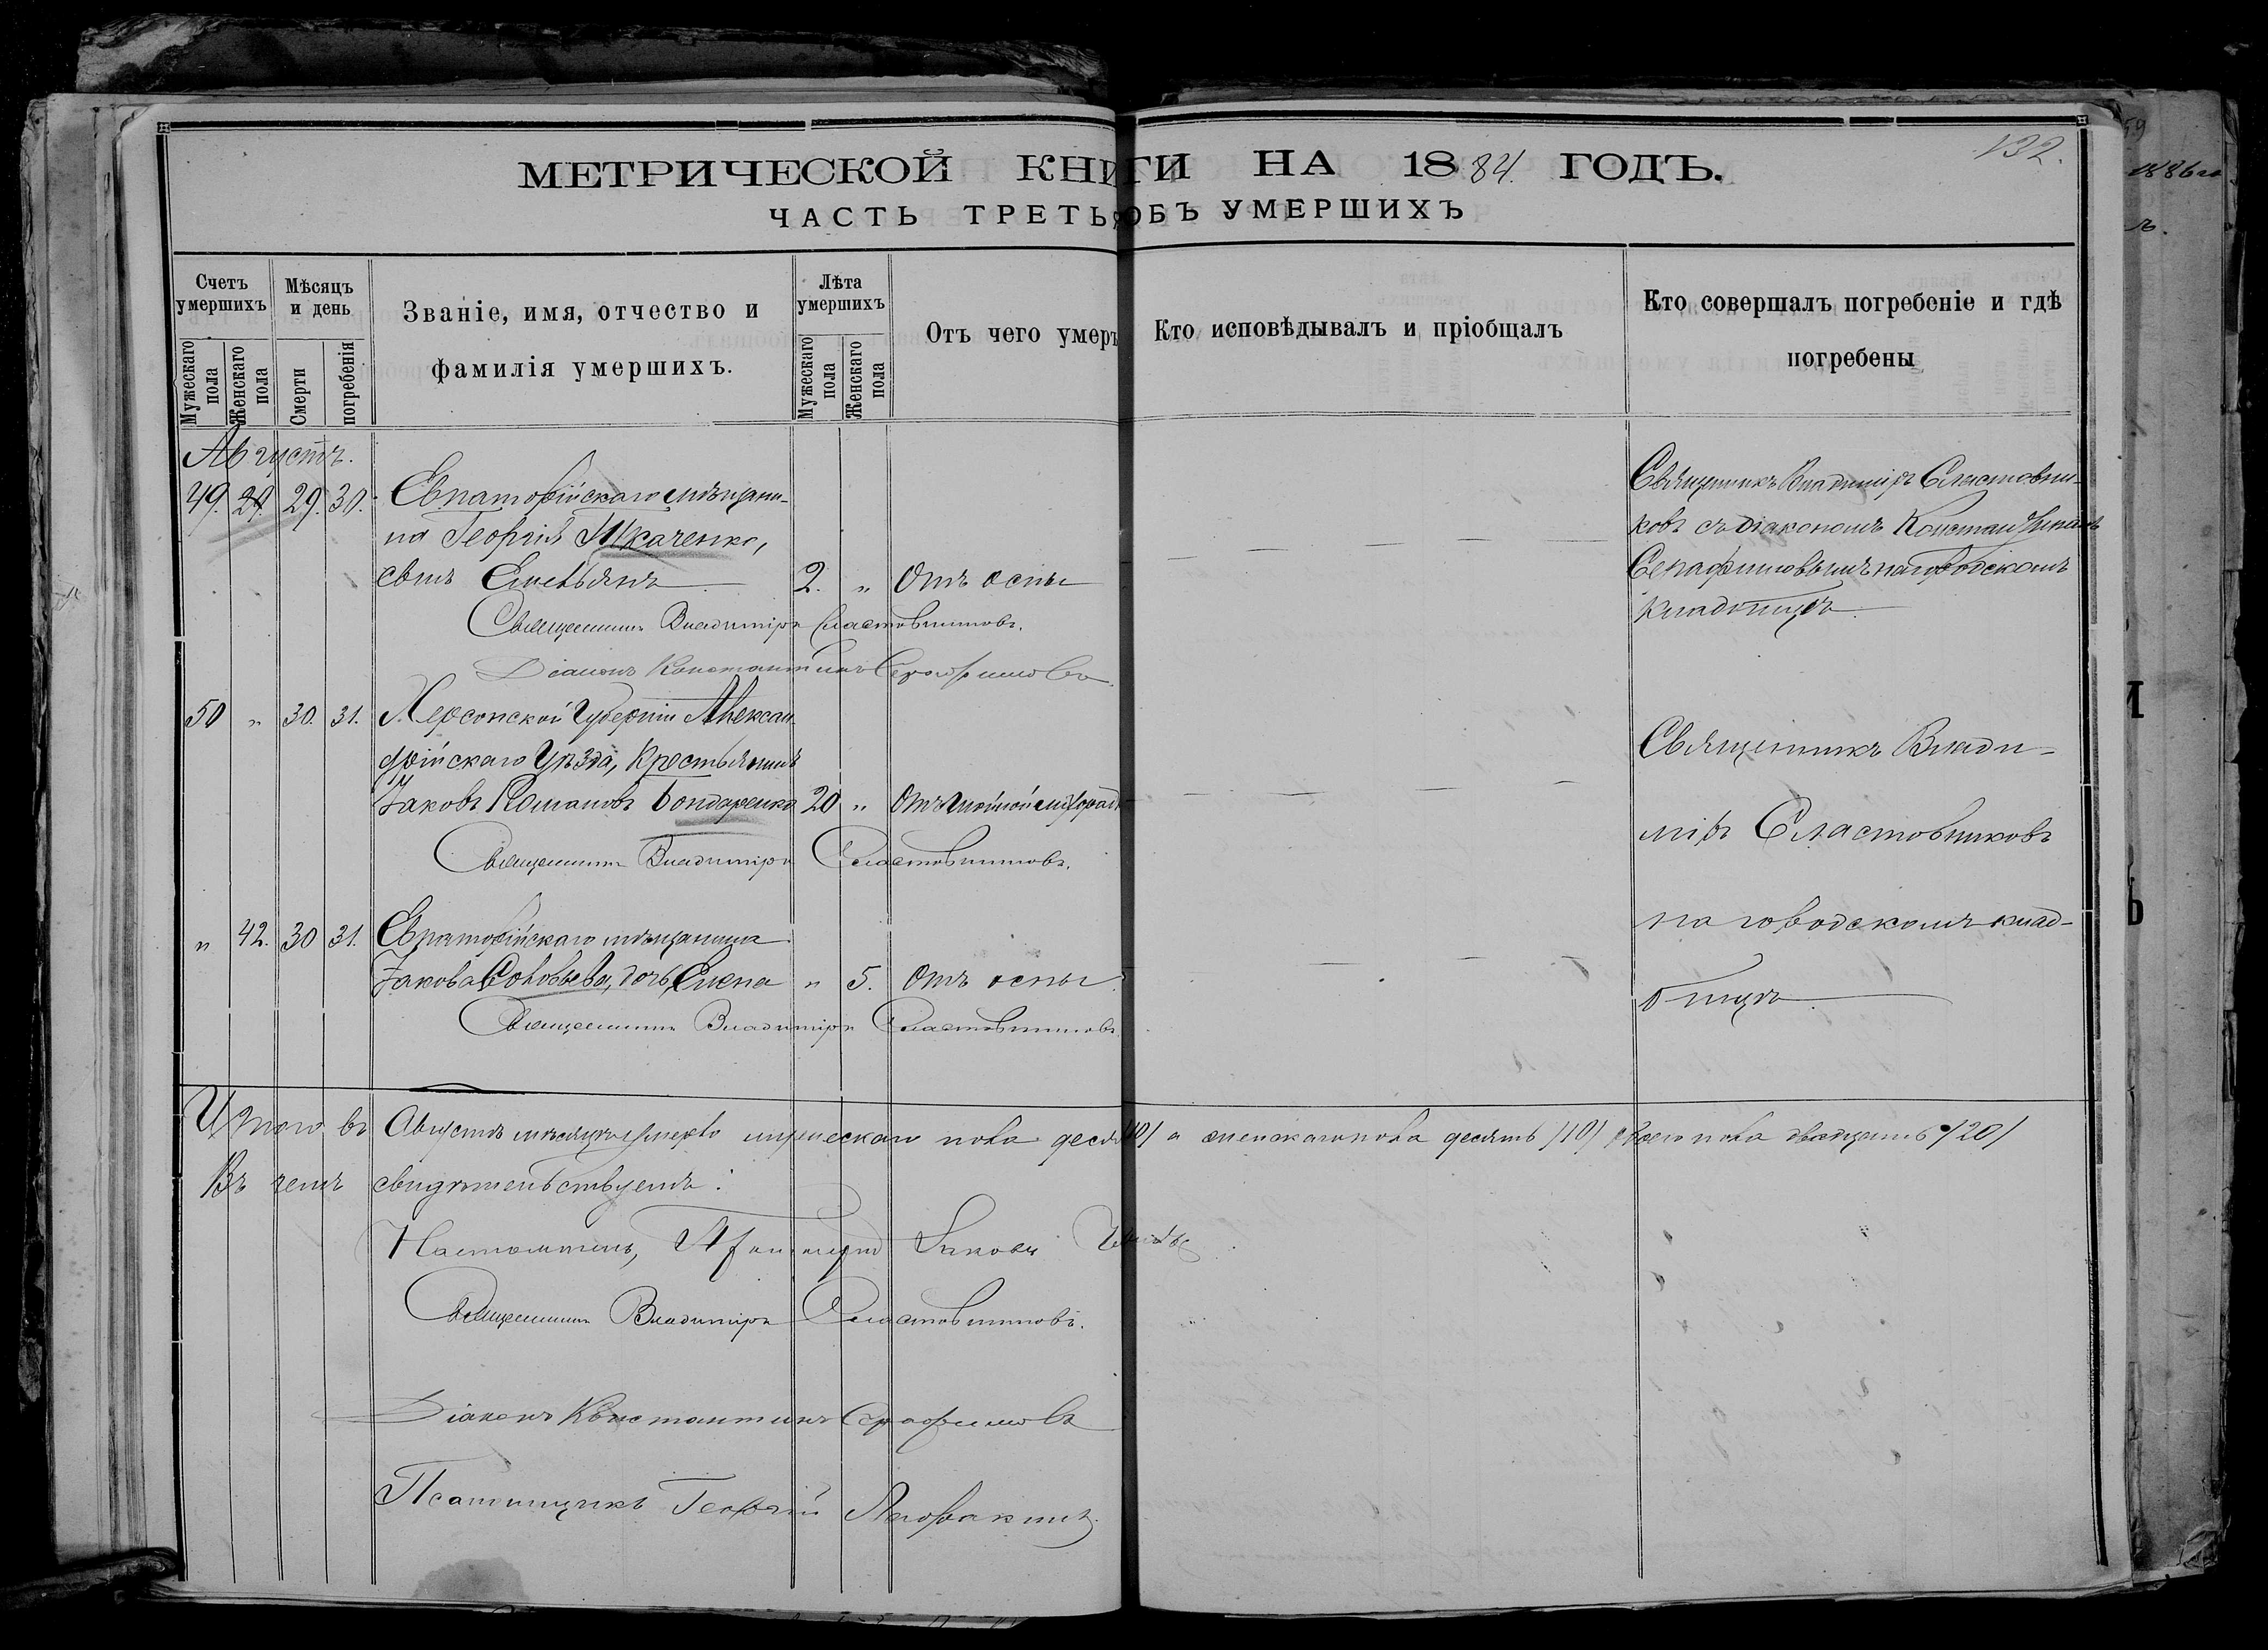 132.
МЕТРИЧЕСКОЙ КНИГИ НА 1884. ГОДЪ.
ЧАСТЬ ТРЕТЬЯ ОБЪ УМЕРШИХЪ
Счетъ умершихъ
Мѣсяцъ и день
Званіе, имя, отчество и фамилія умершихъ.
Лѣта умершихъ
Отъ чего умеръ
Кто исповѣдывалъ и пріобщалъ
Кто совершалъ погребеніе и гдѣ погребены
Мужескаго пола
Женскаго пола
Смерти
погребенія
Мужескаго пола
Женскаго пола
Августъ.
49. 29. 30. Евпаторійскаго мѣщани-
на Георгія Ткаченко,
сынъ Емельянъ 2. „ Отъ оспы
Священникъ Владиміръ Сластовни-
ковъ съ діакономъ Константиномъ
Серафимовымъ на городскомъ
кладбищѣ.
Священникъ Владиміръ Сластовниковъ.
Діаконъ Константинъ Серафимовъ.
50 „ 30. 31. Херсонской Губерніи Алексан-
дрійскаго Уѣзда, Крестьянинъ
Іаковъ Романовъ Бондаренко 20 „ Отъ
Священникъ Влади-
міръ Сластовниковъ
на городскомъ клад-
бищѣ.
Священникъ Владиміръ Сластовниковъ.
„ 42. 30 31. Евпаторійскаго мѣщанина
Іакова Соловьева, дочь Елена „ 5. Отъ оспы
Священникъ Владиміръ Сластовниковъ
Итого въ Августѣ мѣсяцѣ умерло мужескаго пола десять /10/ а женскаго пола десять /10/ обоего пола двадцать /20/
Въ чемъ свидѣтельствуемъ:
Настоятель, Протоіерей Іаковъ
Священникъ Владиміръ Сластовниковъ.
Діаконъ Константинъ Серафимовъ
Псаломщикъ Георгій
1886
59